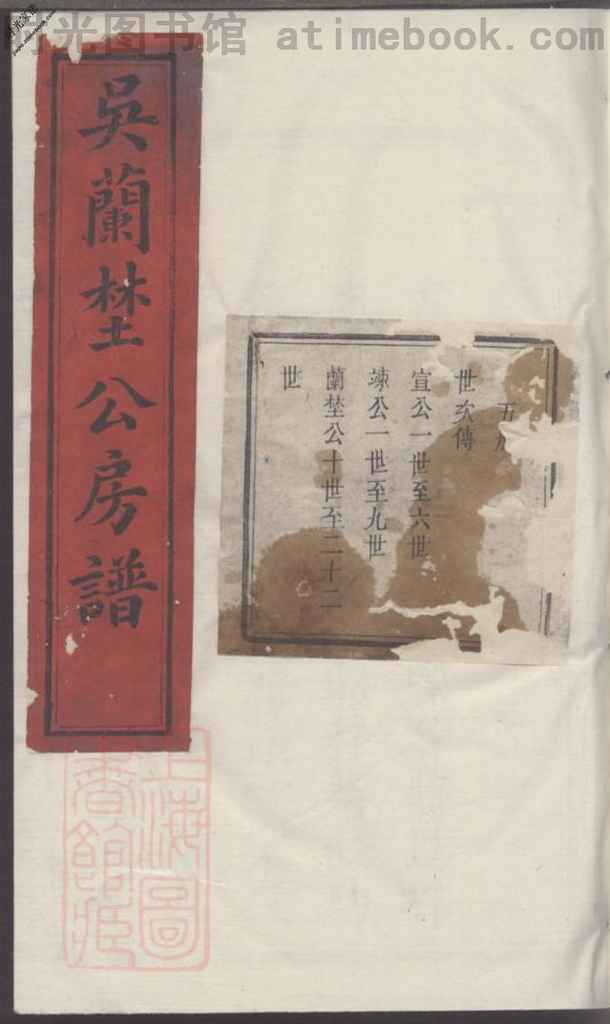 时光图书馆 atimebook.com
吳蘭埜公房譜
世次傳
宣公一世至六世
竦公一世至九世
蘭埜公十世至二十二
世
上海圖
書館藏